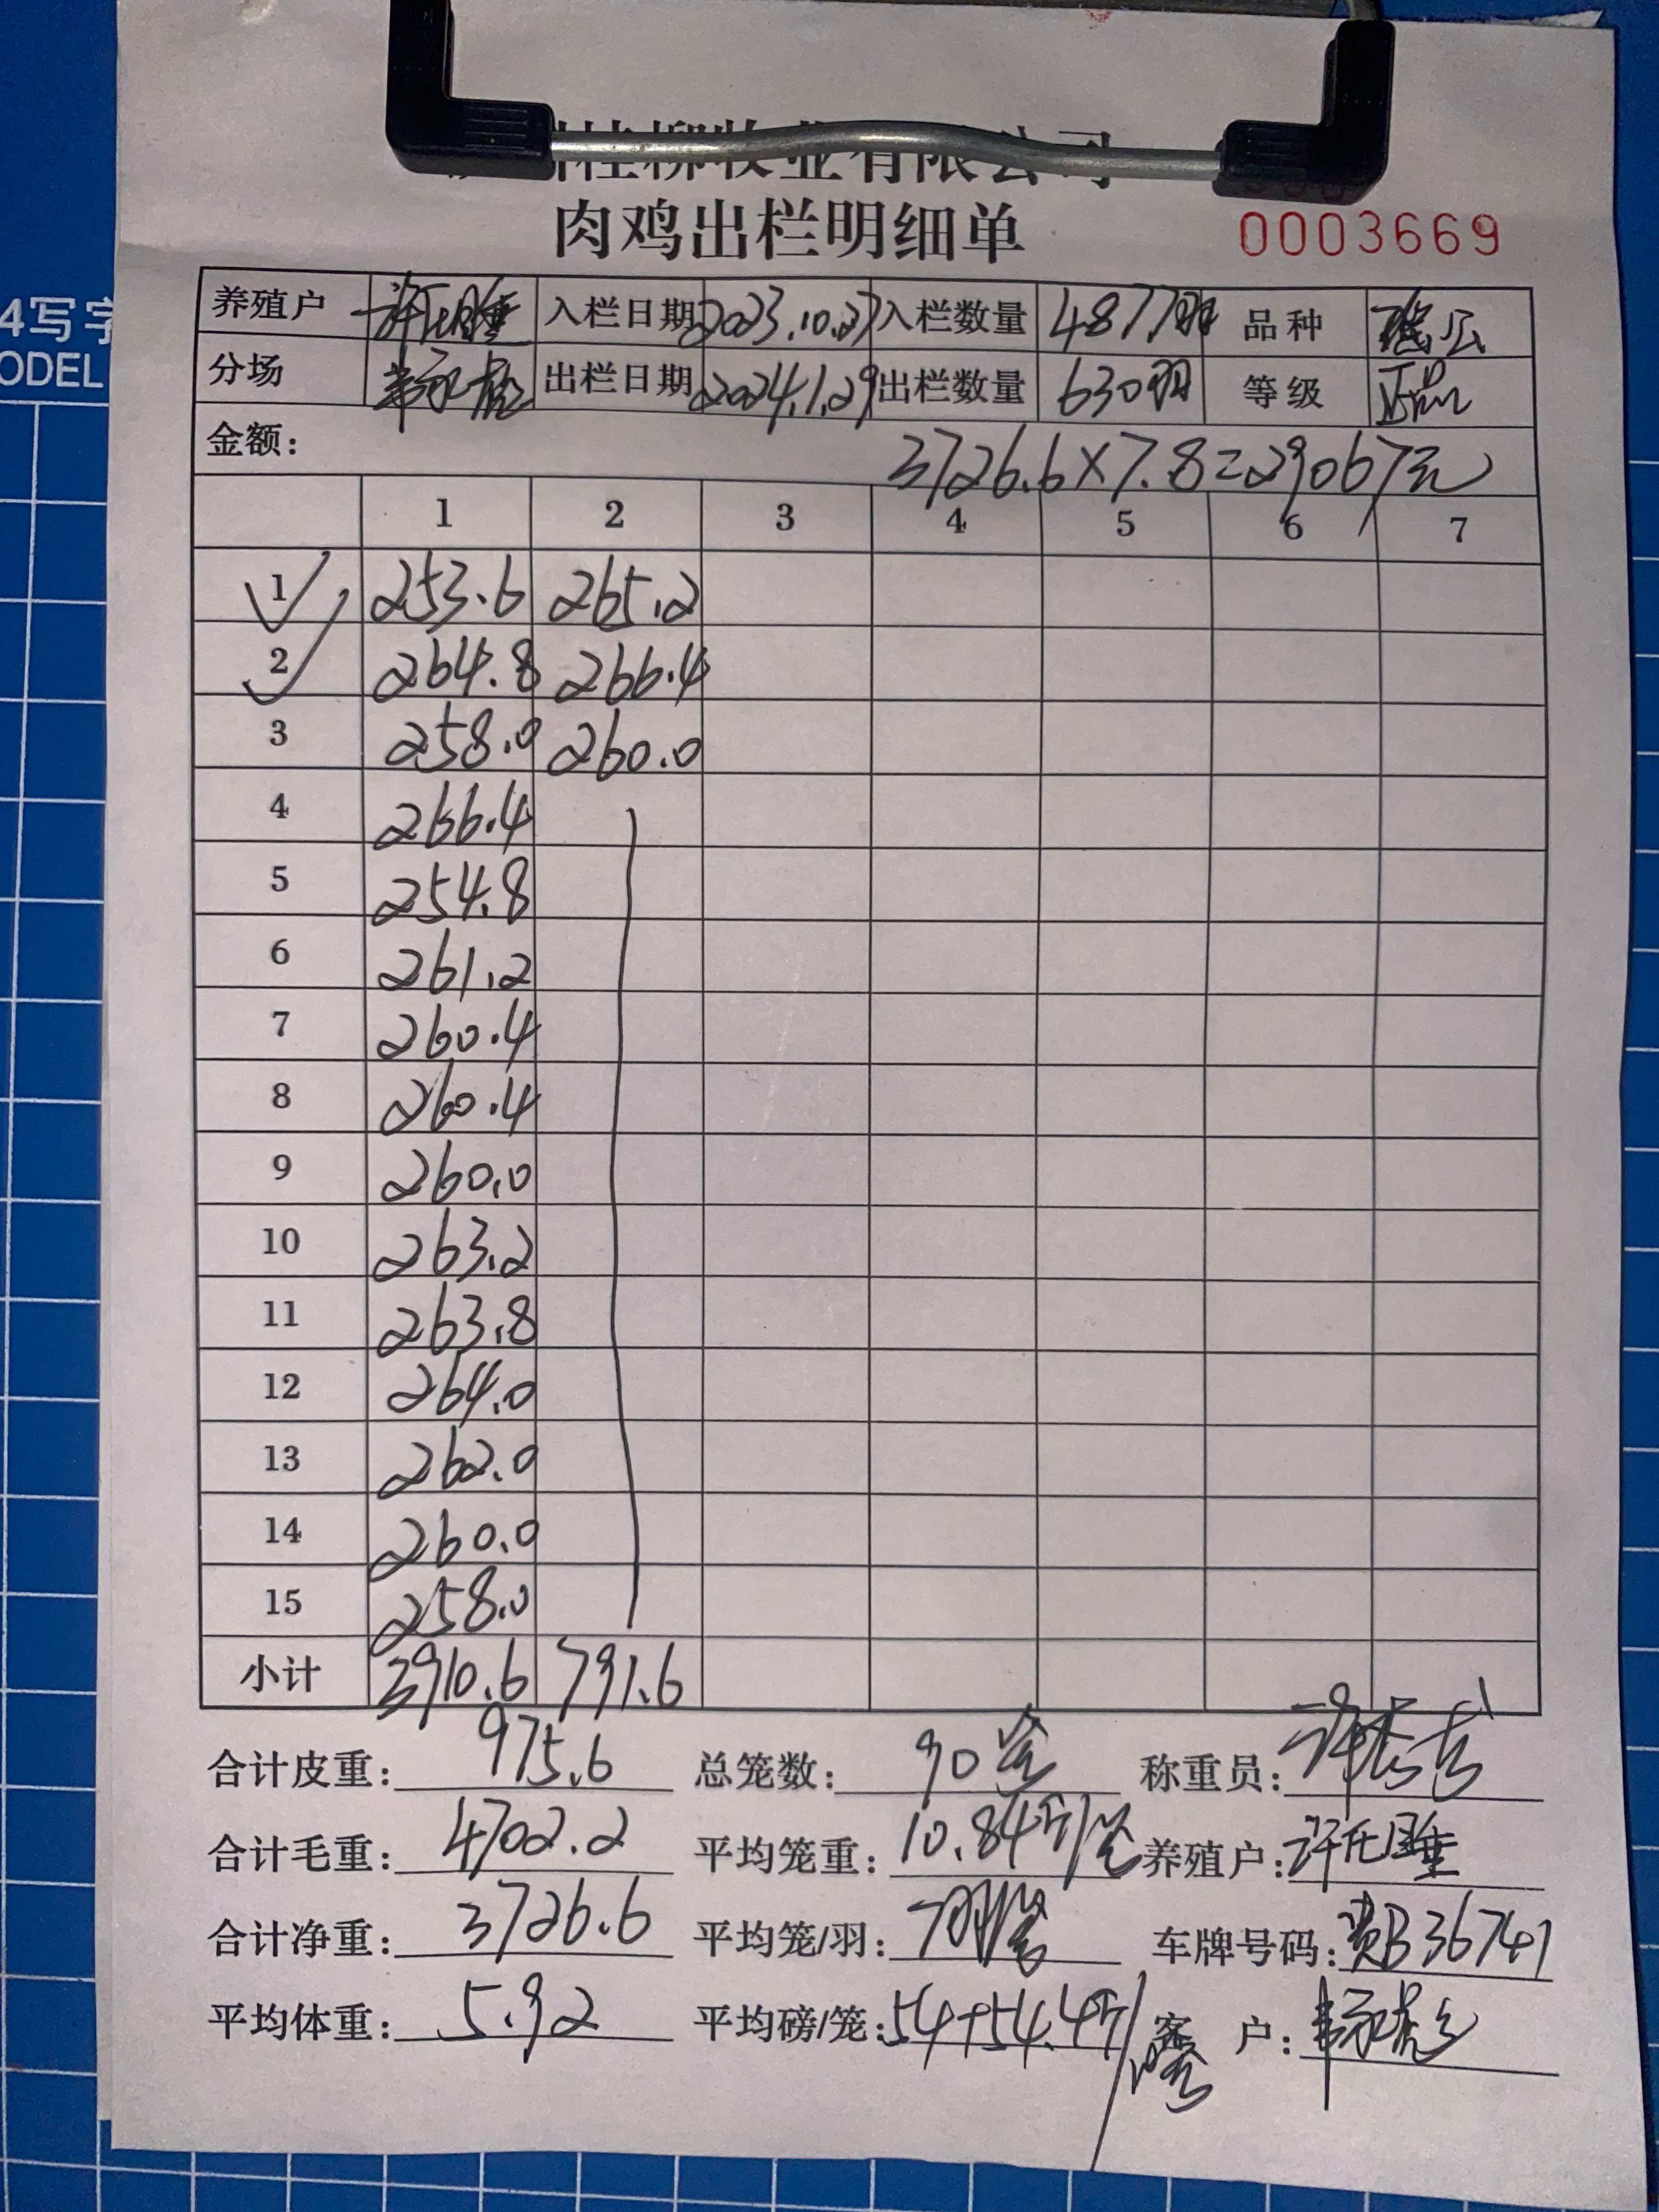 桂柳牧业有限公司
肉鸡出栏明细单 0003669
养殖户 入栏日期 2023.10.27 入栏数量 4877羽 品种 瑶公
分场 出栏日期 2024.1.29 出栏数量 630羽 等级 正品
金额: 3726.6×7.8=29067元
1 2 3 4 5 6 7
1 253.6 265.2
2 264.8 266.4
3 258.0 260.0
4 266.4
5 254.8
6 261.2
7 260.4
8 260.4
9 260.0
10 263.2
11 263.8
12 264.0
13 262.0
14 260.0
15 258.0
小计 3910.6 791.6
合计皮重: 975.6 总笼数: 90笼 称重员:
合计毛重: 4702.2 平均笼重: 10.84斤/笼 养殖户:
合计净重: 3726.6 平均笼/羽: 7羽/笼 车牌号码: 贵B36741
平均体重: 5.92 平均磅/笼: 54+54.4斤/ 客户:
4写字
ODEL